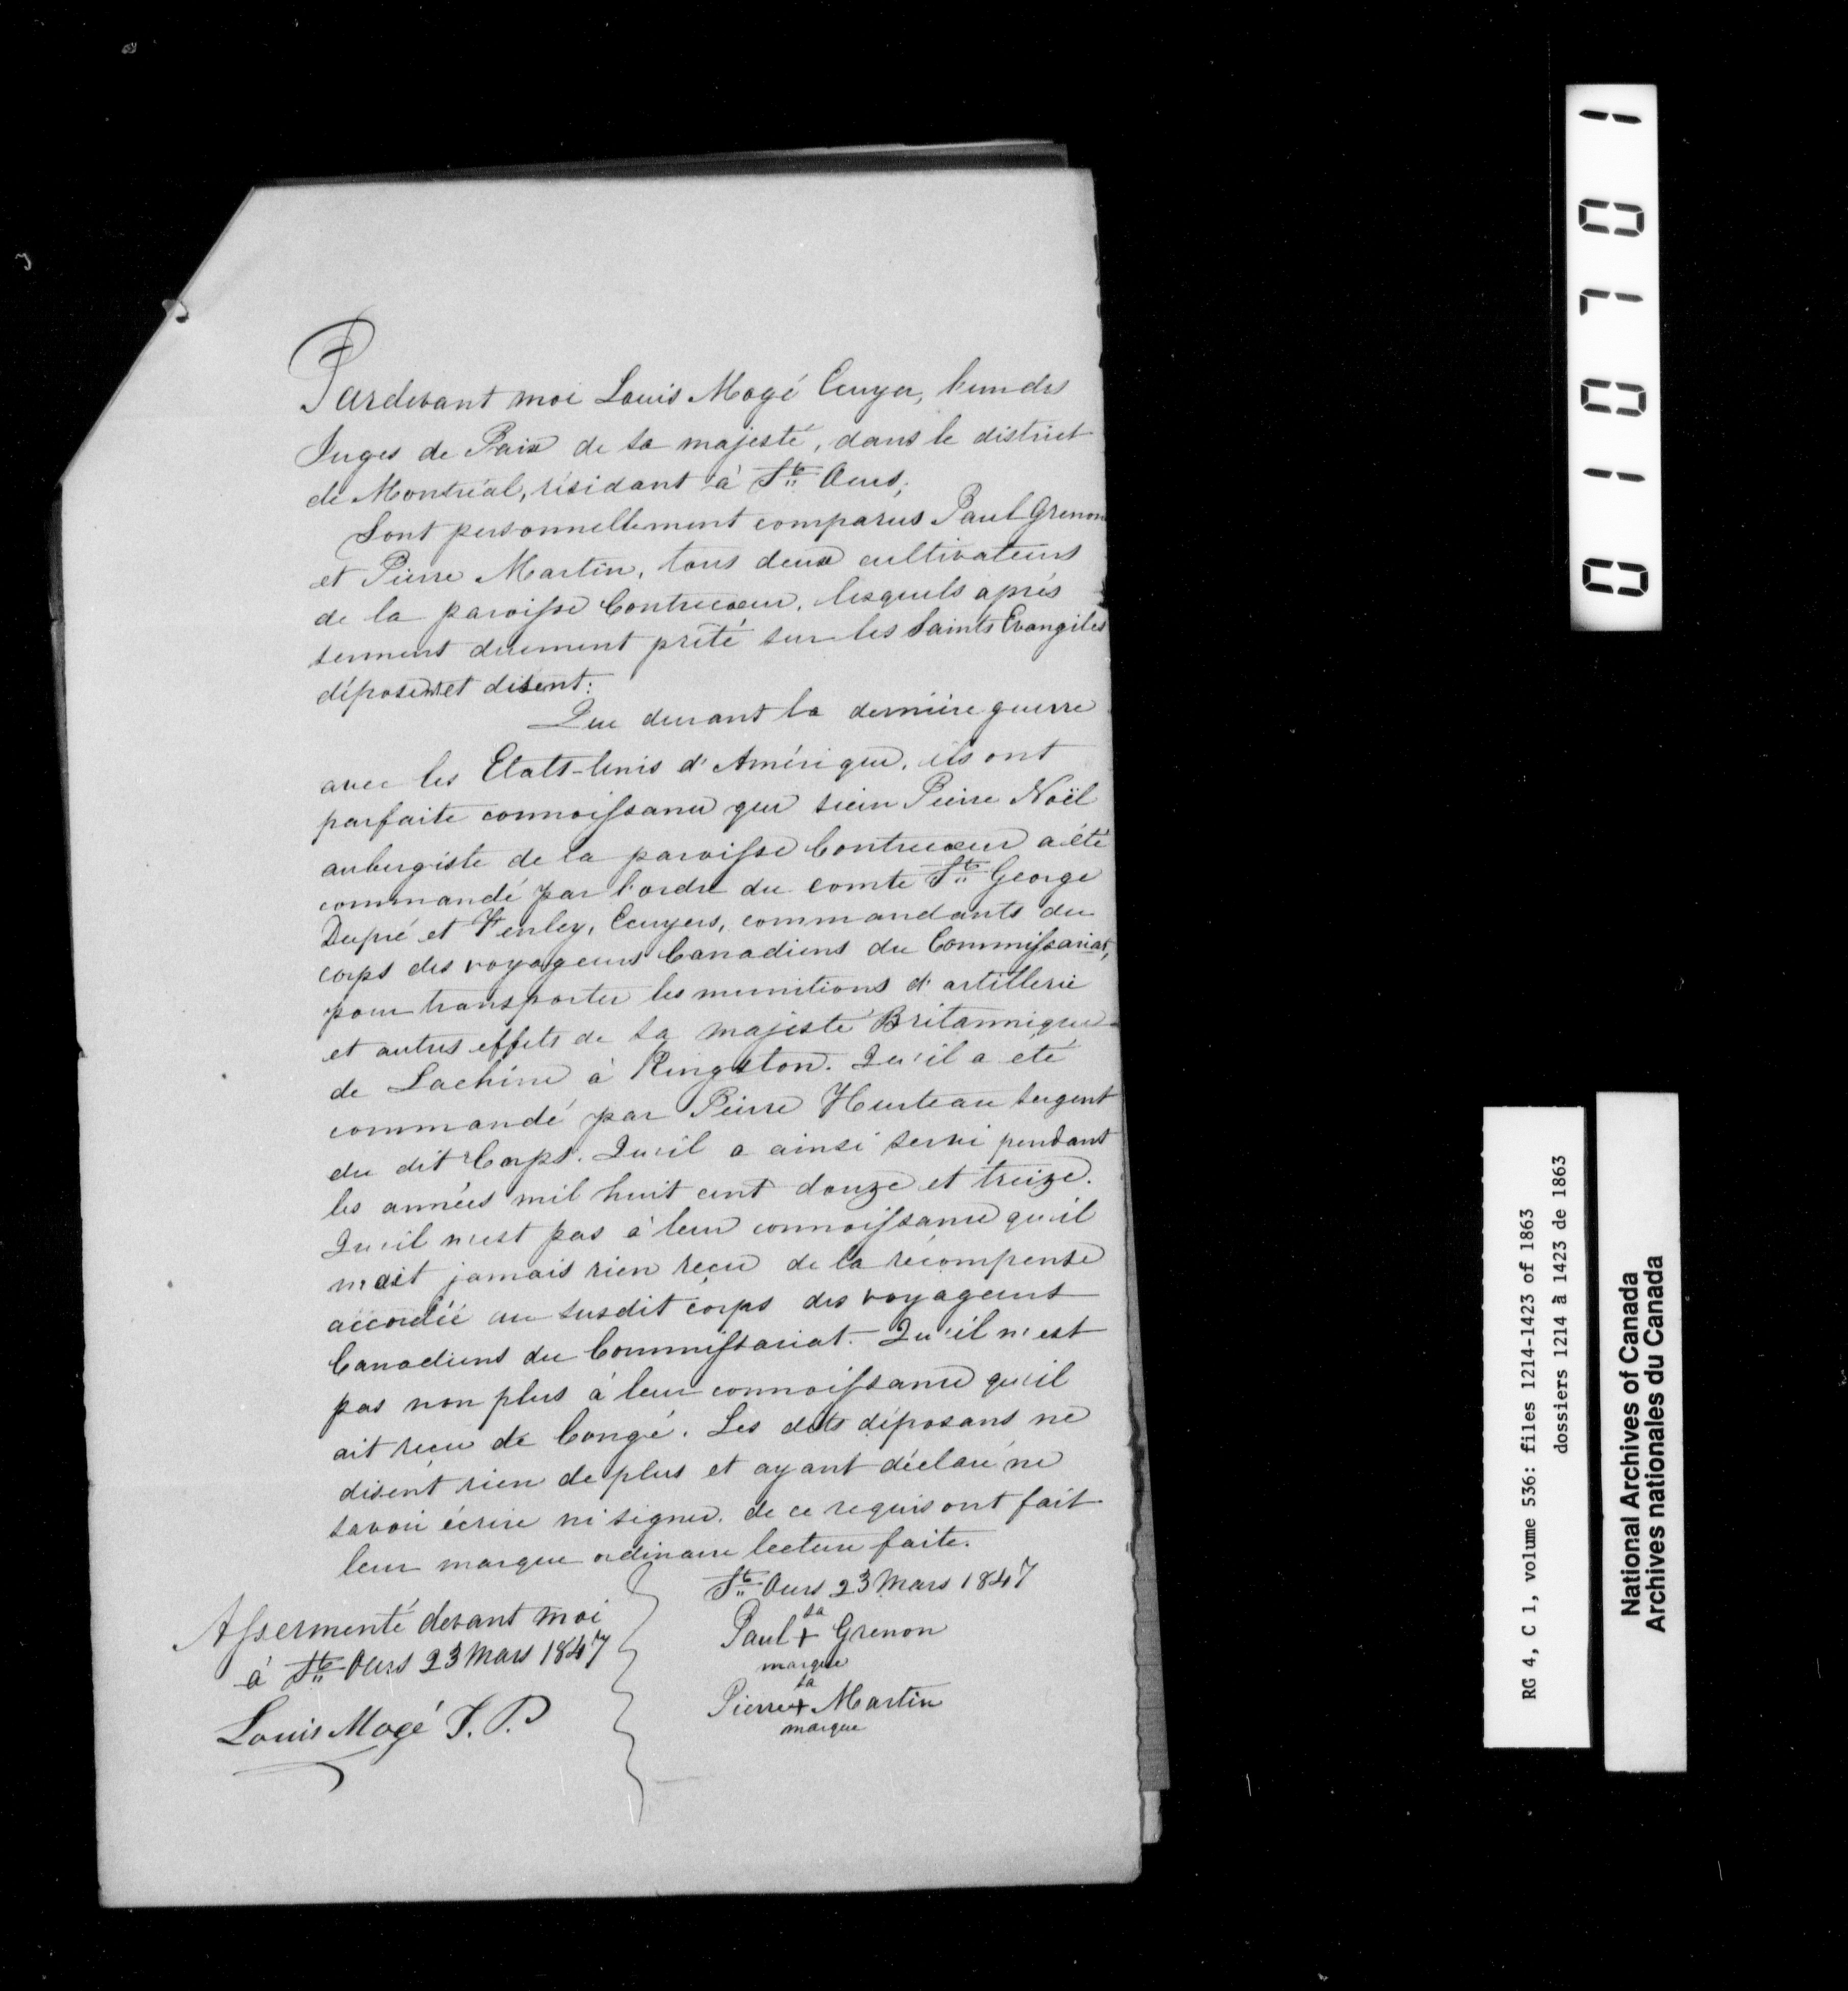 Pardevant moi Louis Mogé Ecuyer, l'un des
Juges de Paix de Sa majesté, dans le district
de Montréal, résidant à St. Ours;
Sont personnellement comparus Paul Grenon
et Pierre Martin, tous deux cultivateurs
de la paroisse Contrecoeur, lesquels après
serment duement prêté sur les Saints Evangiles
déposent et disent:
Que durant la dernière guerre
avec les Etats-Unis d'Amérique, ils ont
parfaite connoissance que sieur Pierre Noël
aubergiste de la paroisse Contrecoeur a été
commandé par l'ordre du comte St. George
Dupré et Fenley, Ecuyers, commandants du
corps des voyageurs Canadiens du Commissariat,
pour transporter les munitions d'artillerie
et autres effets de Sa majesté Britannique
de Lachine à Kingston. Qu'il a été
commandé par Pierre Hurteau Sergent
du dit Corps. Qu'il a ainsi servi pendant
les années mil huit cent douze et treize.
Qu'il n'est pas à leur connoissance qu'il
n'ait jamais rien reçu de la récompense
accordée au susdit corps des voyageurs
Canadiens du Commissariat. Qu'il n'est
pas non plus à leur connoissance qu'il
ait reçu de Congé. Les dits déposans ne
disent rien de plus et ayant déclaré ne
savoir écrire ni signer, de ce requis ont fait
leur marque ordinaire lecture faite.
St. Ours 23 Mars 1847
sa
Paul + Grenon
marque
sa
Pierre + Martin
marque
Assermenté devant moi
à St. Ours 23 Mars 1847
Louis Mogé J.P.
0 1 0 7 0 1
RG 4, C 1, volume 536: files 1214-1423 of 1863
dossiers 1214 à 1423 de 1863
National Archives of Canada
Archives nationales du Canada